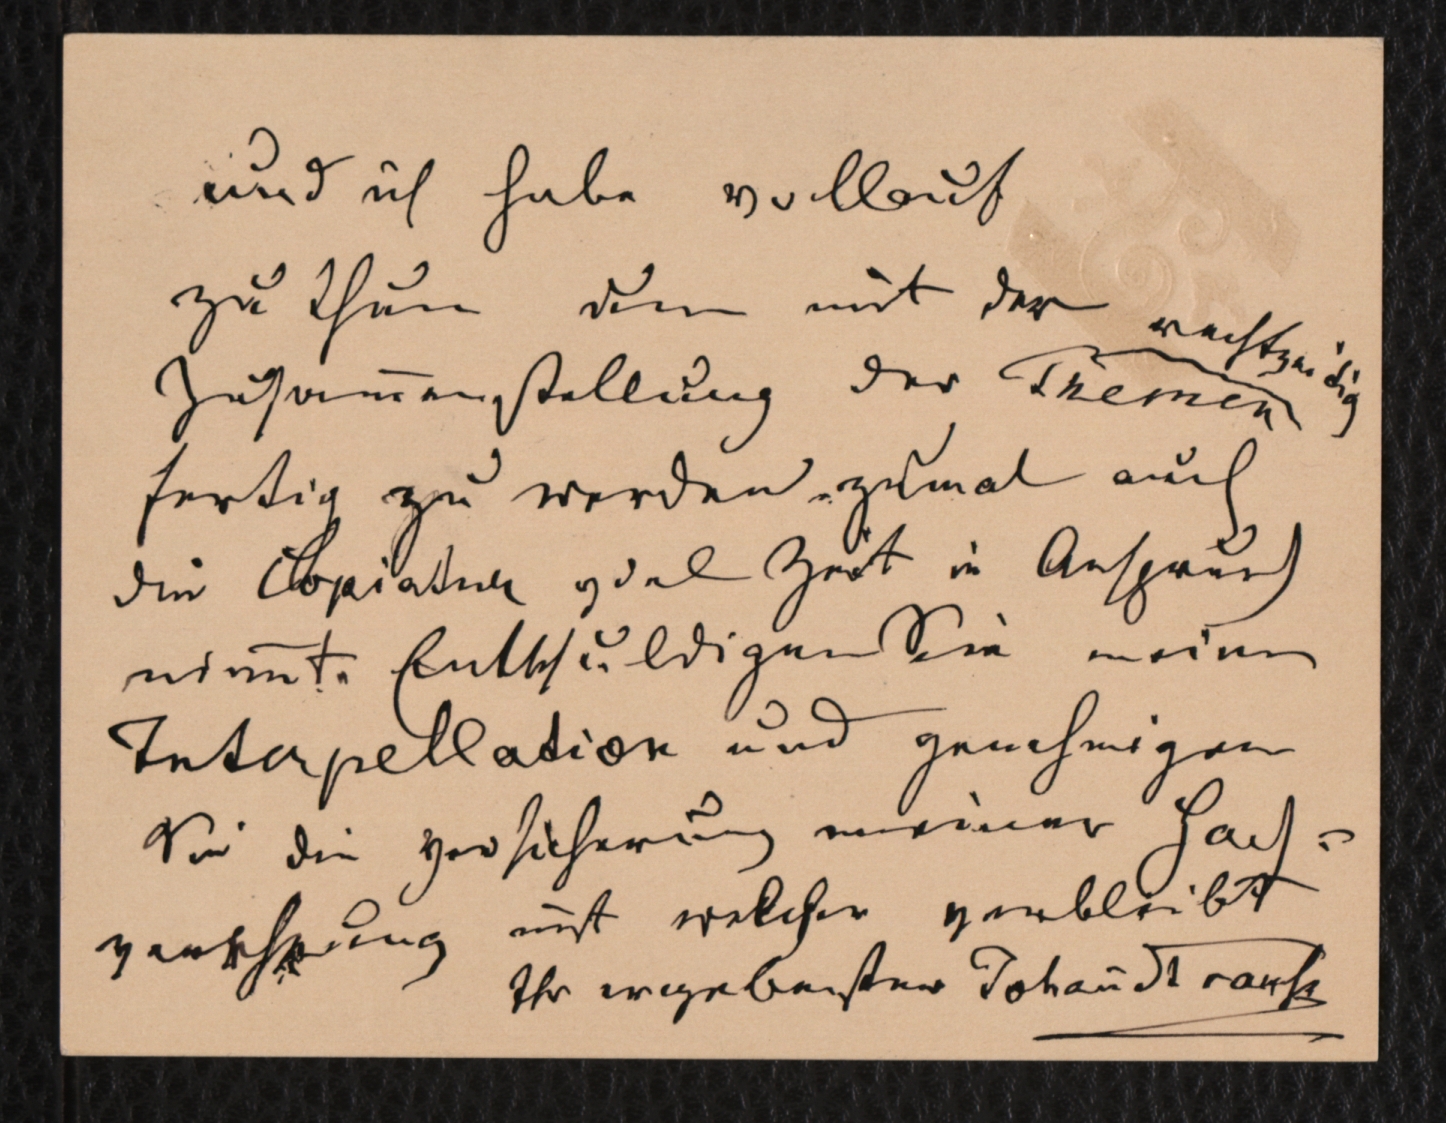 und ich habe vollauf
zu thun um mit der
rechtzeidig
Zusam̅enstellung der Themen
fertig zu werden zumal auch
die Copiatur viel Zeit in Anspruch
nim̅t. Entschuldigen Sie meine
Interpellation und genehmigen
Sie die Versicherung meiner Hoch=
verehrung mit welcher verbleibt
Ihr ergebenster Johan̅ Strauss